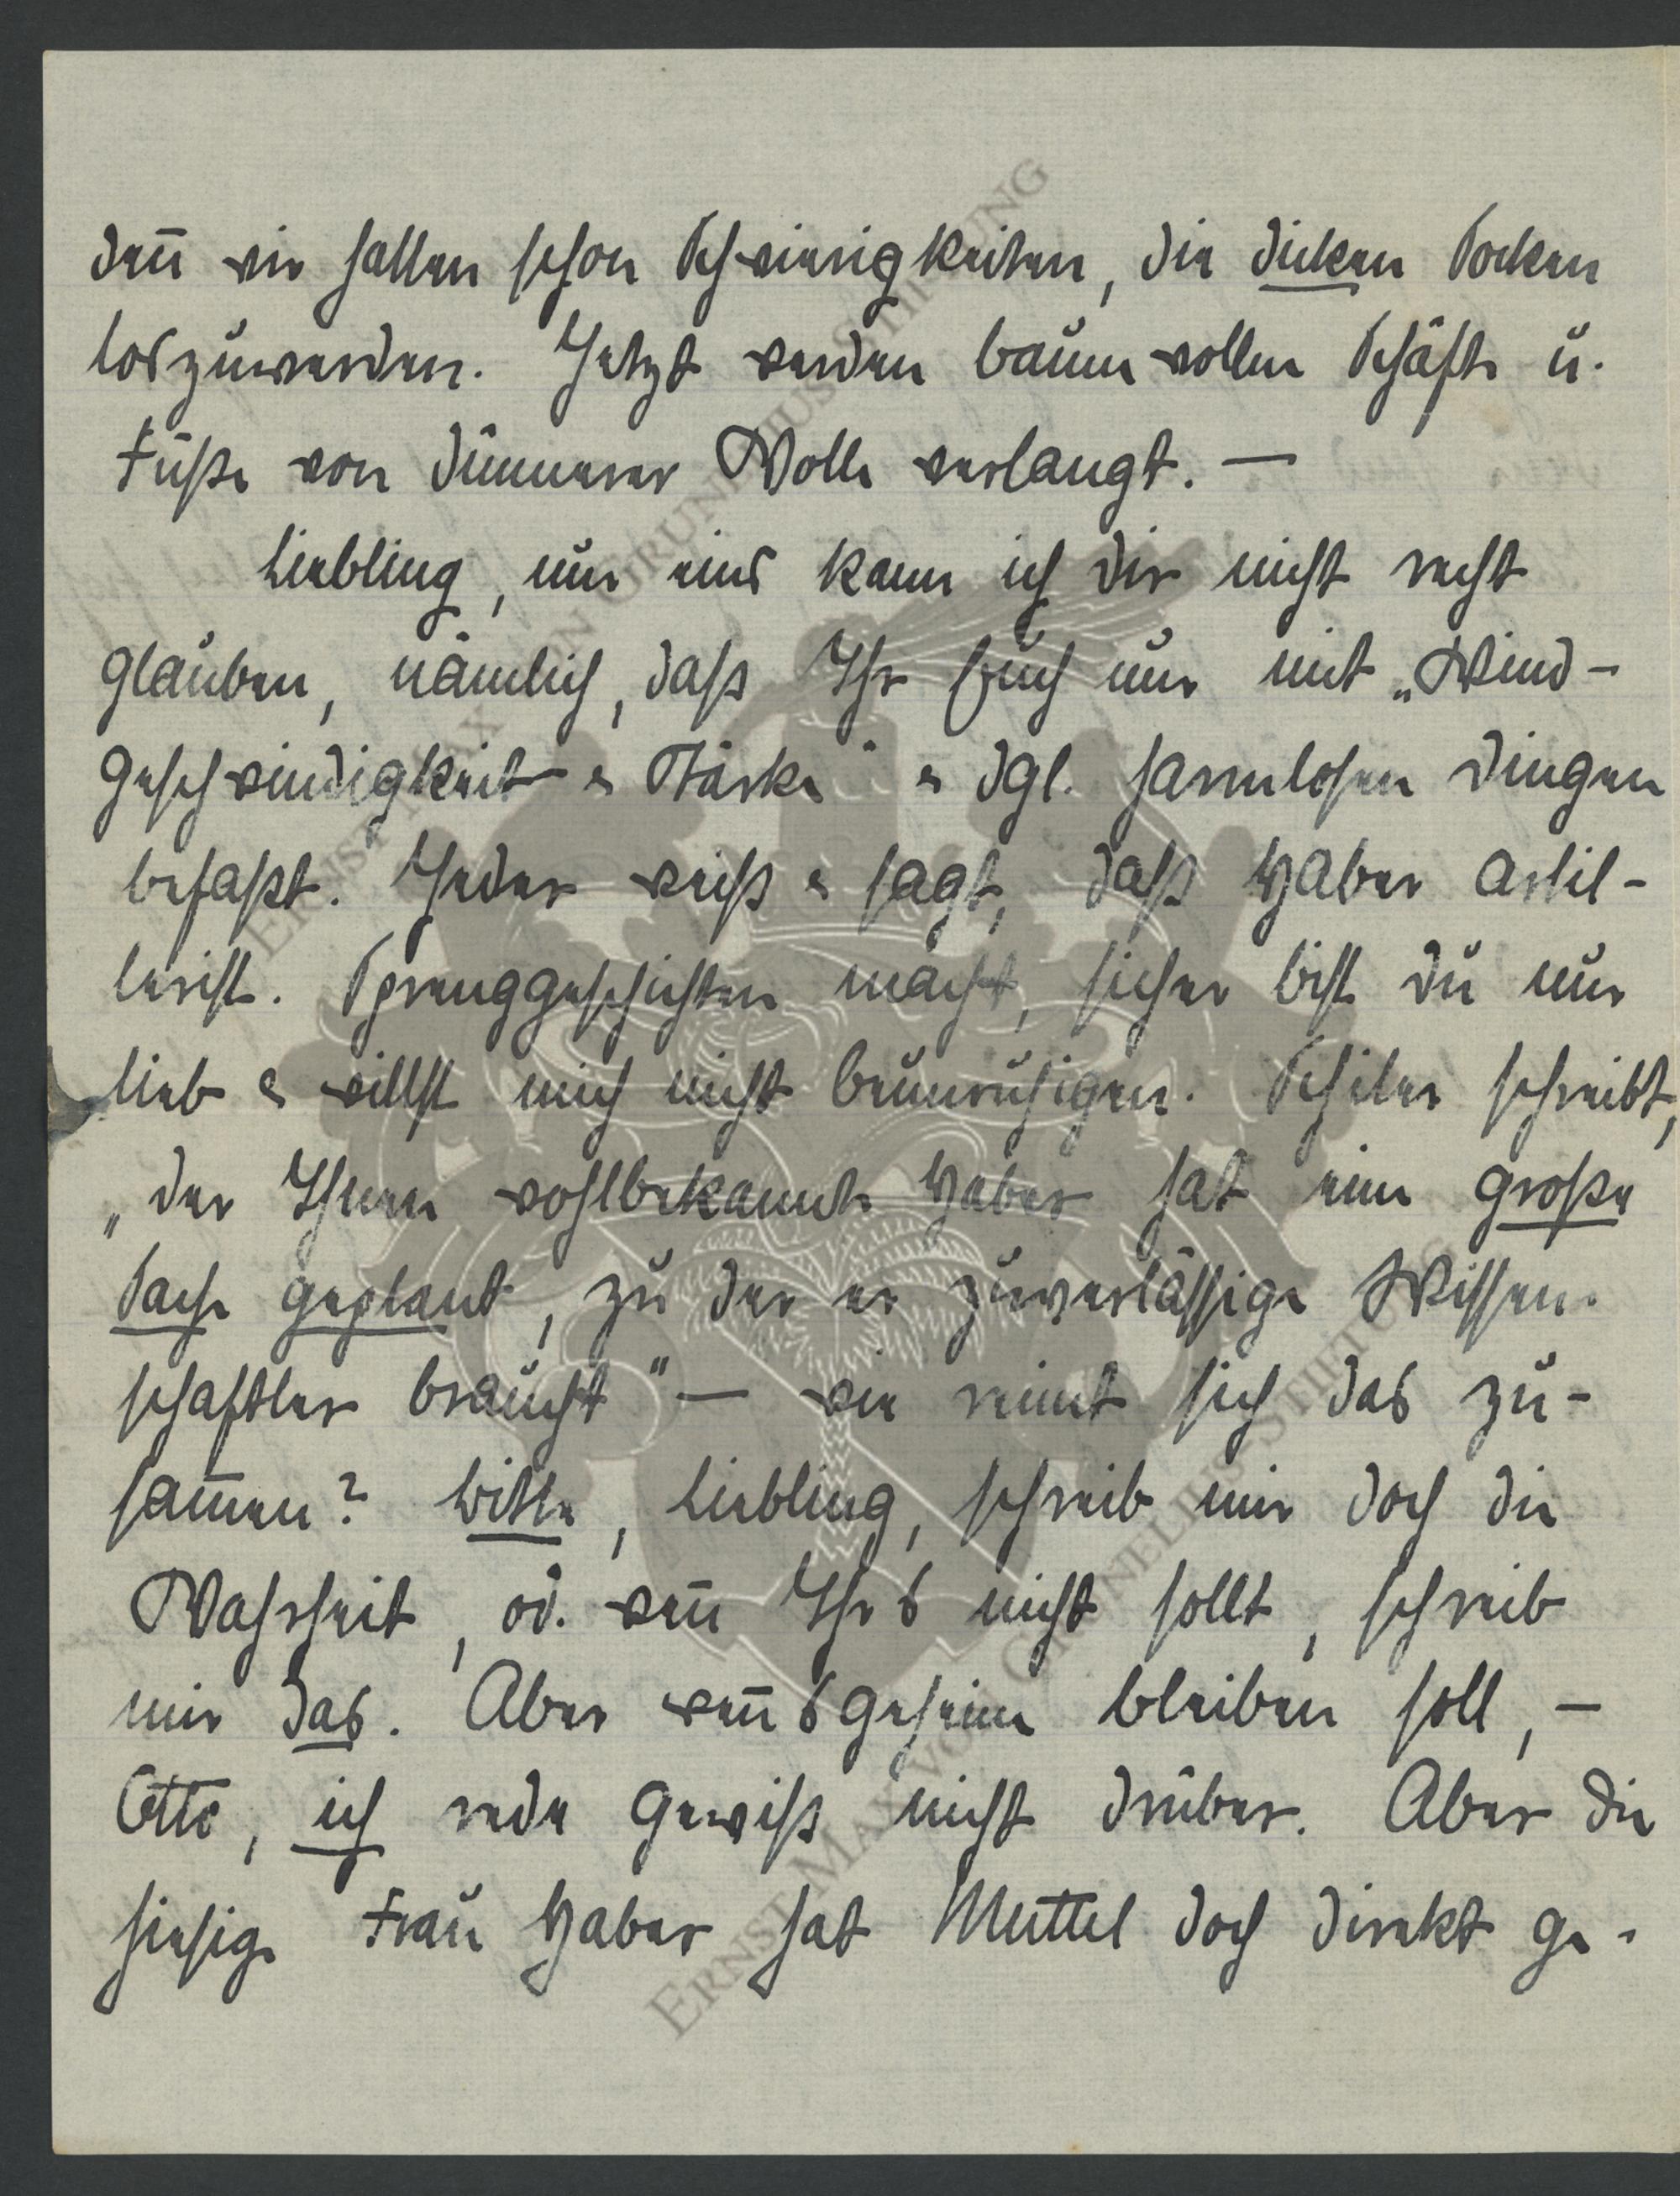 den̅ wir hatten schon Schwierigkeiten, die dicken Socken
loszuwerden. Jetzt werden baumwollne Schäfte u.
Füße von dünnerer Wolle verlangt. —
Liebling, nur eins kann ich dir nicht recht
glauben, nämlich, dass Ihr Euch nur mit „Wind-
geschwindigkeit & Stärke" & dgl. harmlosen Dingen
befaßt. Jeder weiß & sagt, daß Haber Artil-
lerist. Sprenggeschichten macht, sicher bist du nur
lieb & willst mich nicht beunruhigen. Schiler schreibt,
„der Ihnen wohlbekannte Haber hat eine große
Sache geplant, zu der er zuverlässige Wissen-
schaftler braucht" — wie reimt sich das zu-
sam̅en? Bitte, Liebling, schreib mir doch die
Wahrheit, od. wen̅ Ihrs nicht sollt, schreib
mir das. Aber wen̅s geheim bleiben soll, —
Otto, ich rede gewiß nicht drüber. Aber die
hiesige Frau Haber hat Muttel doch direkt ge-
ERNST MAX VON GRUNELIUS-STIFTUNG
ERNST MAX VON GRUNELIUS-STIFTUNG